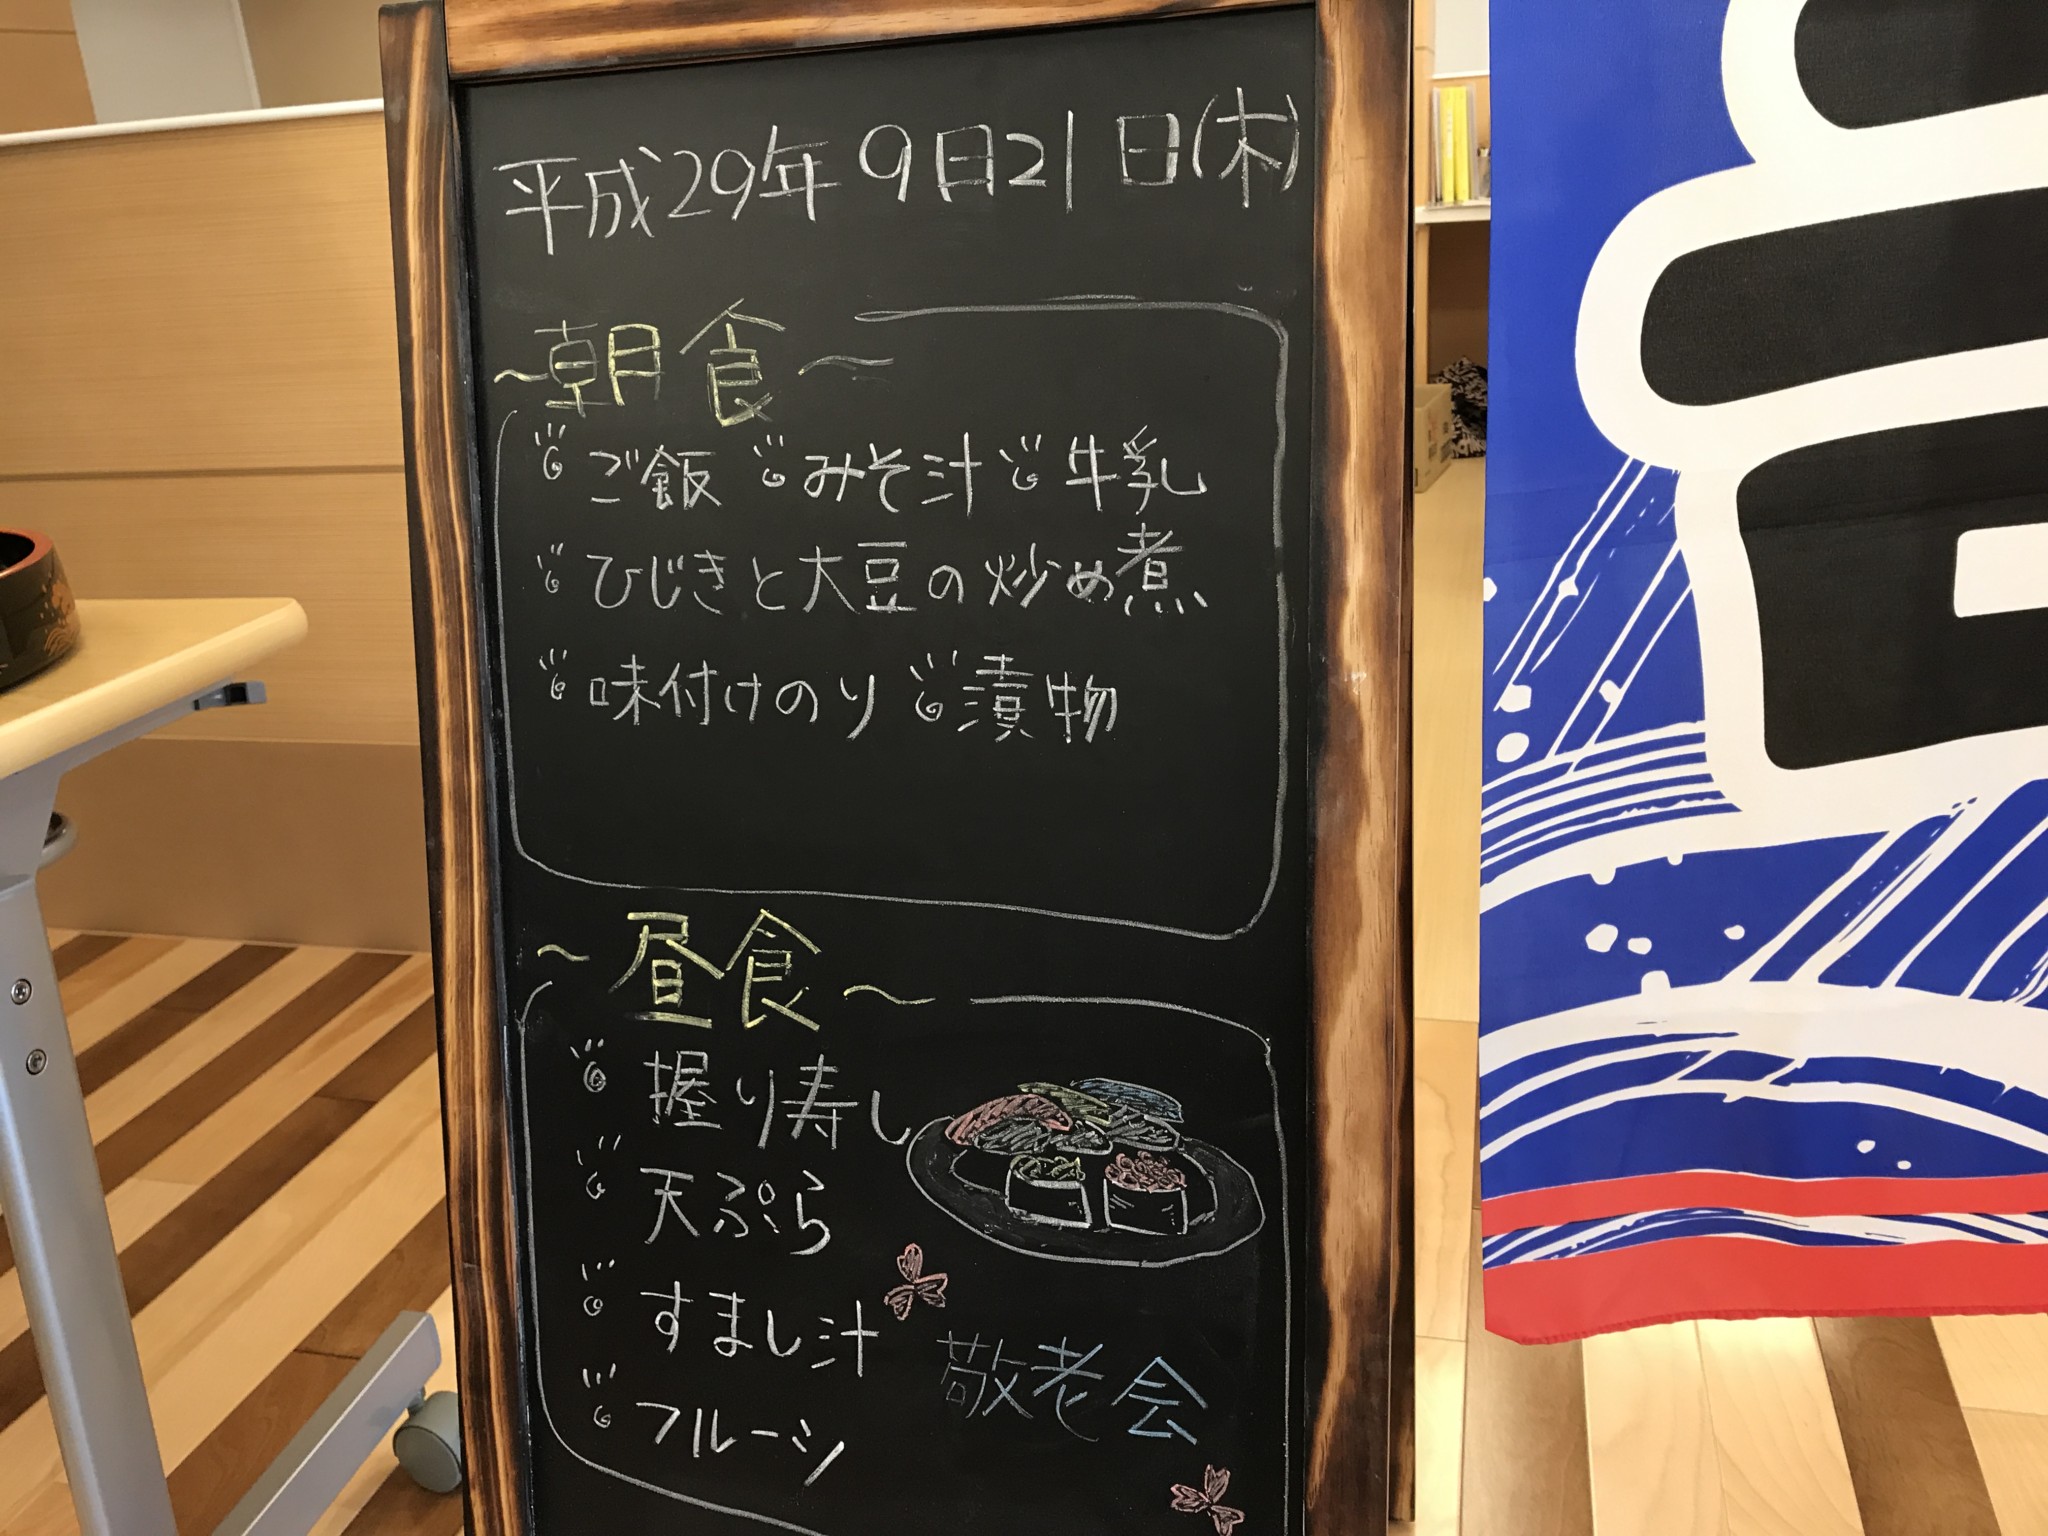 平成29年 9日21日(木)
～朝食～
ご飯 みそ汁 牛乳
ひじきと大豆の炒め煮
味付けのり 漬物
～昼食～
握り寿し
天ぷら
すまし汁
フルーツ
敬老会